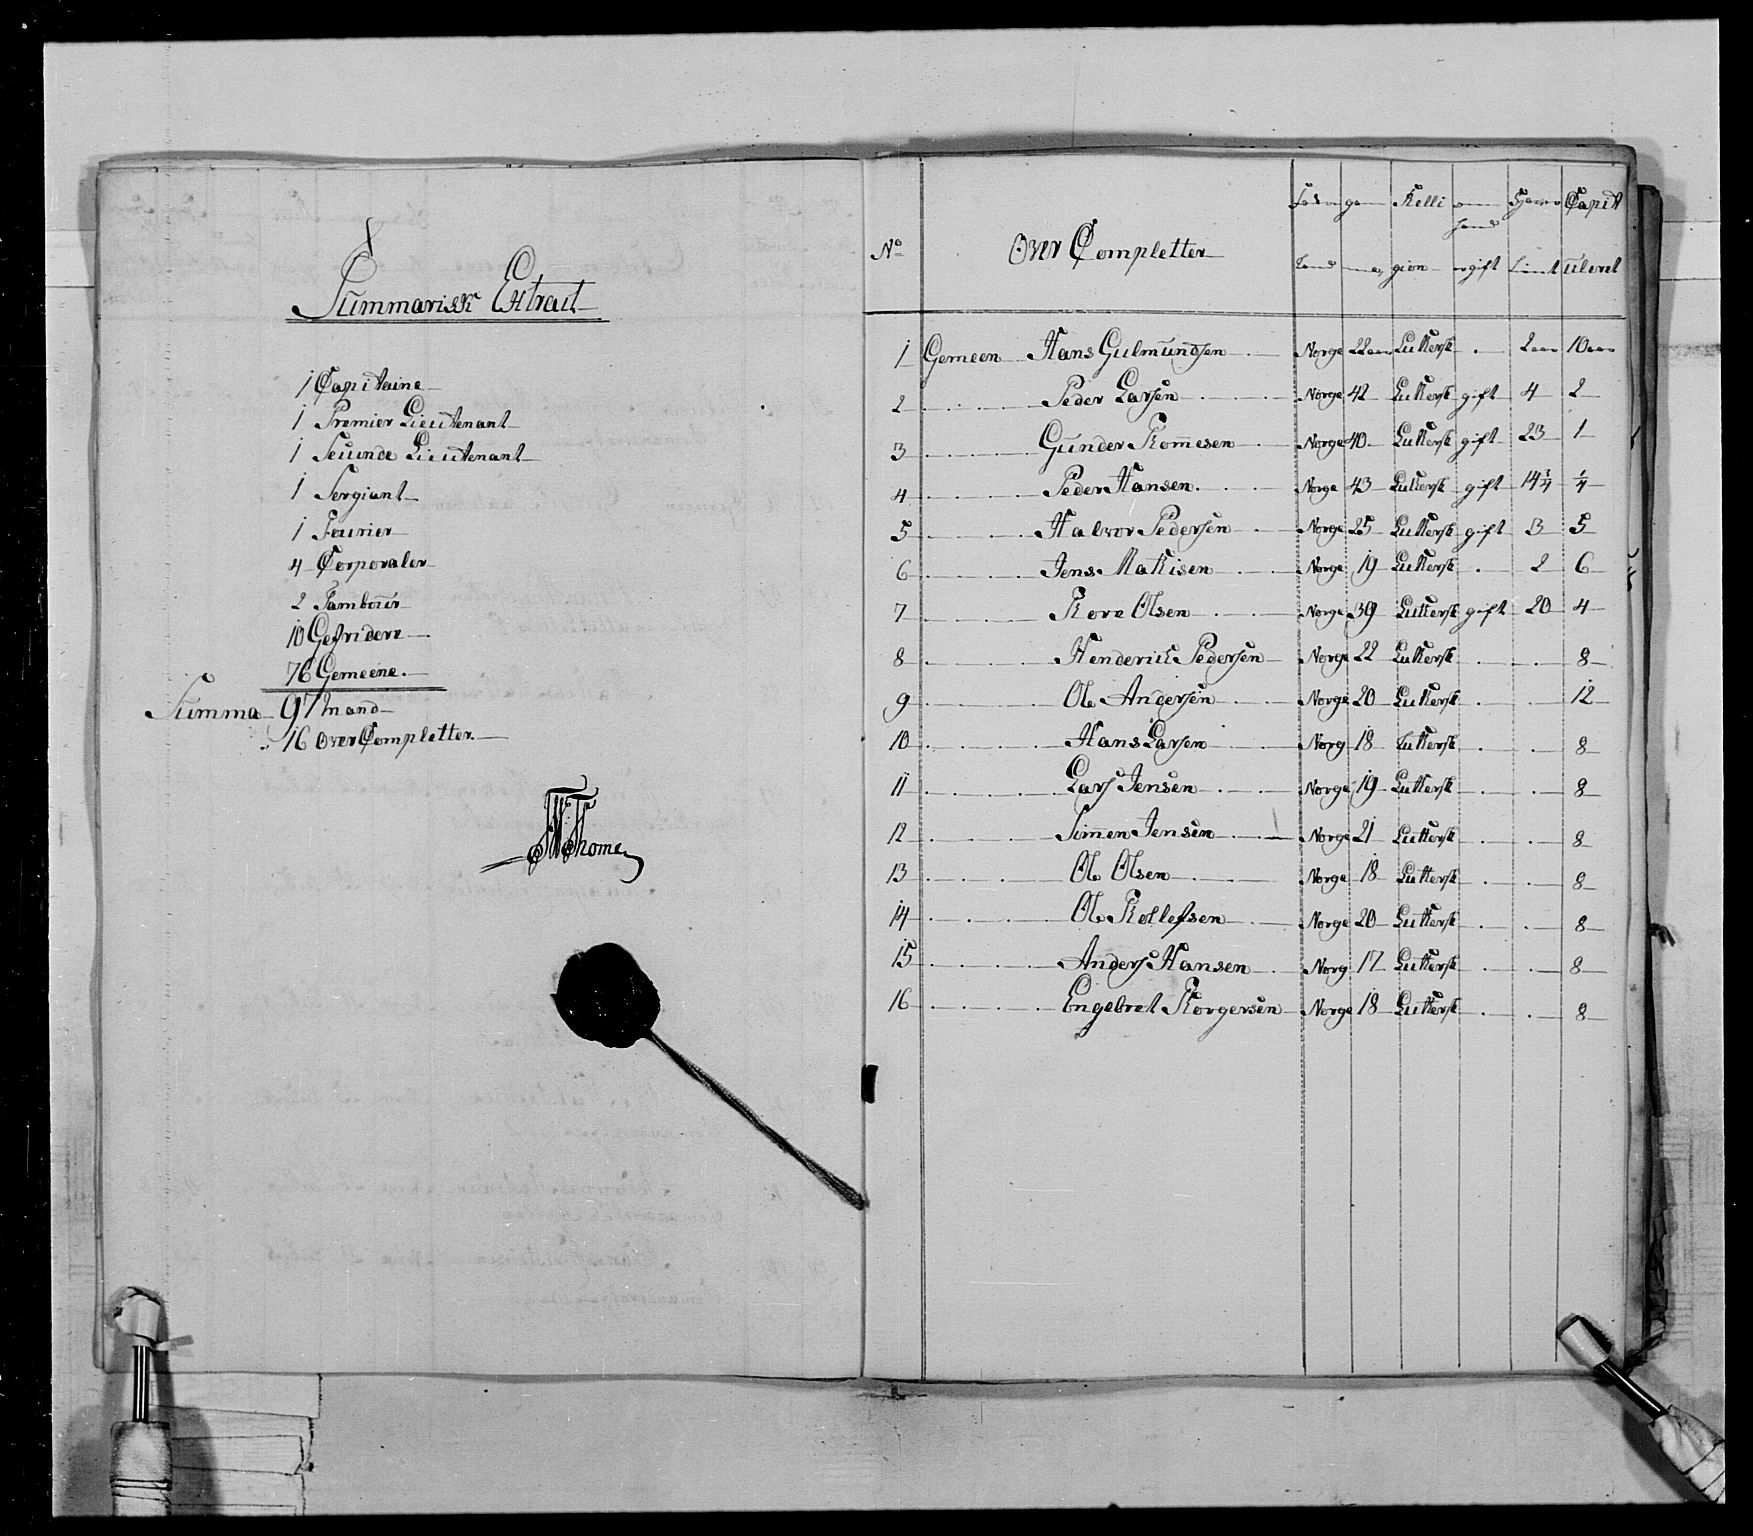 Summarisk Extract
1 Capitaine
1 Premier Lieutenant
1 Secunde Lieutenant
1 Sergiant
1 Fourier
4 Corporaler
2 Tambour
10 Gefridere
76 Gemeene.
Summa 97 Mand
16 Over Completter.
Thome
No Over Completter Føde Relli Capit
Land gion gift ulant
1 Gemeen Hans Gulmundsen Norge 22 aar Lutersk . 2 aar 10 aar
2 Peder Larsen Norge 42 Lutersk gift 4 2
3 Gunder Tomesen Norge 40 Lutersk gift 23 1
4 Peder Hansen Norge 43 Lutersk gift 14 3/4 1/4
5 Halvor Pedersen Norge 25 Lutersk gift 3 5
6 Jens Matisen Norge 19 Lutersk . 2 6
7 Tore Olsen Norge 39 Lutersk gift 20 4
8 Henderik Pedersen Norge 22 Lutersk . . 8
9 Ole Andersen Norge 20 Lutersk . . 12
10 Hans Larsen Norg 18 Lutersk . . 8
11 Lars Jensen Norge 19 Lutersk . . 8
12 Simmen Jensen Norge 21 Lutersk . . 8
13 Ole Olsen Norge 18 Lutersk . . 8
14 Ole Tollefsen Norge 20 Lutersk . . 8
15 Anders Hansen Norg 17 Lutersk . . 8
16 Engebret Torgersen Norge 18 Lutersk . . 8